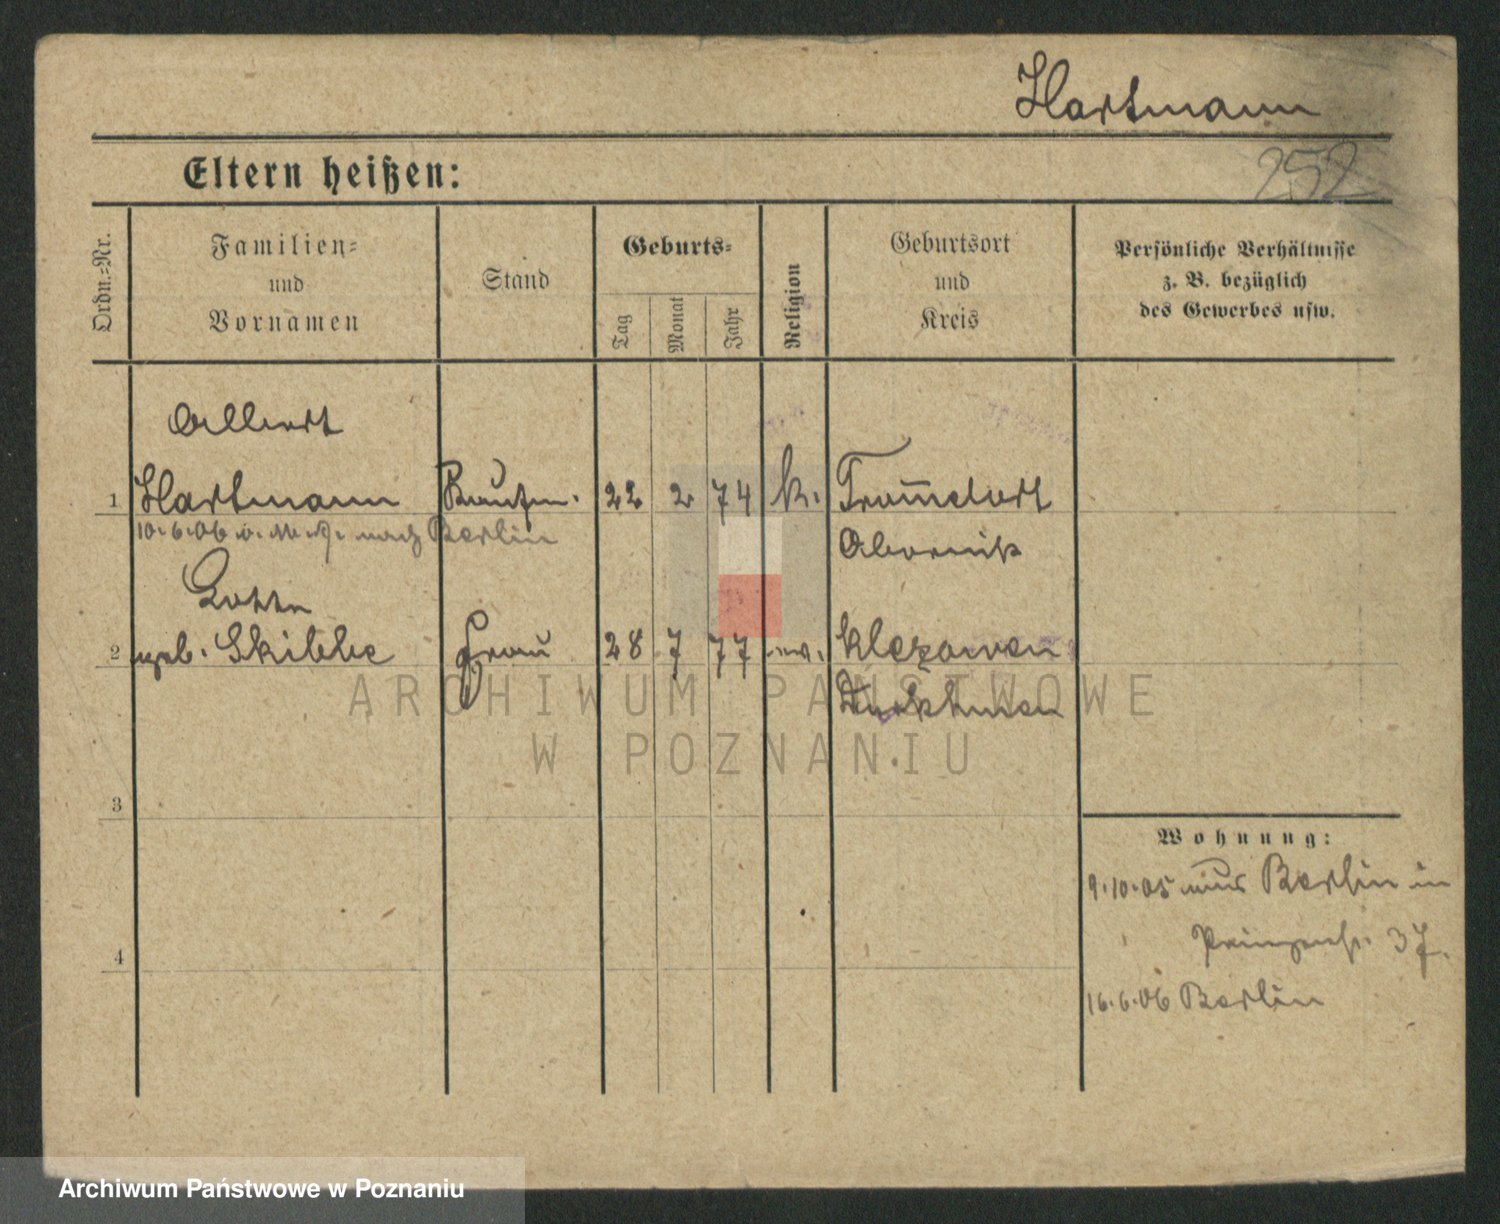 Hartmann
252
Eltern heißen:
Ordn.-Nr.
Familien-
und
Vornamen
Stand
Geburts-
Tag
Monat
Jahr
Religion
Geburtsort
und
Kreis
Persönliche Verhältnisse
z. B. bezüglich
des Gewerbes usw.
Albert
1 Hartmann Kaufm. 22 2 74 k. Trommdorf
10.6.06 nach Berlin
Obornik
2 geb. Skibbe Frau 28 7 77 ev.
ARCHIWUM PAŃSTWOWE
W POZNANIU
3
4
Wohnung:
9.10.05 aus Berlin in
Prinzenstr. 37.
16.6.06 Berlin
Archiwum Państwowe w Poznaniu